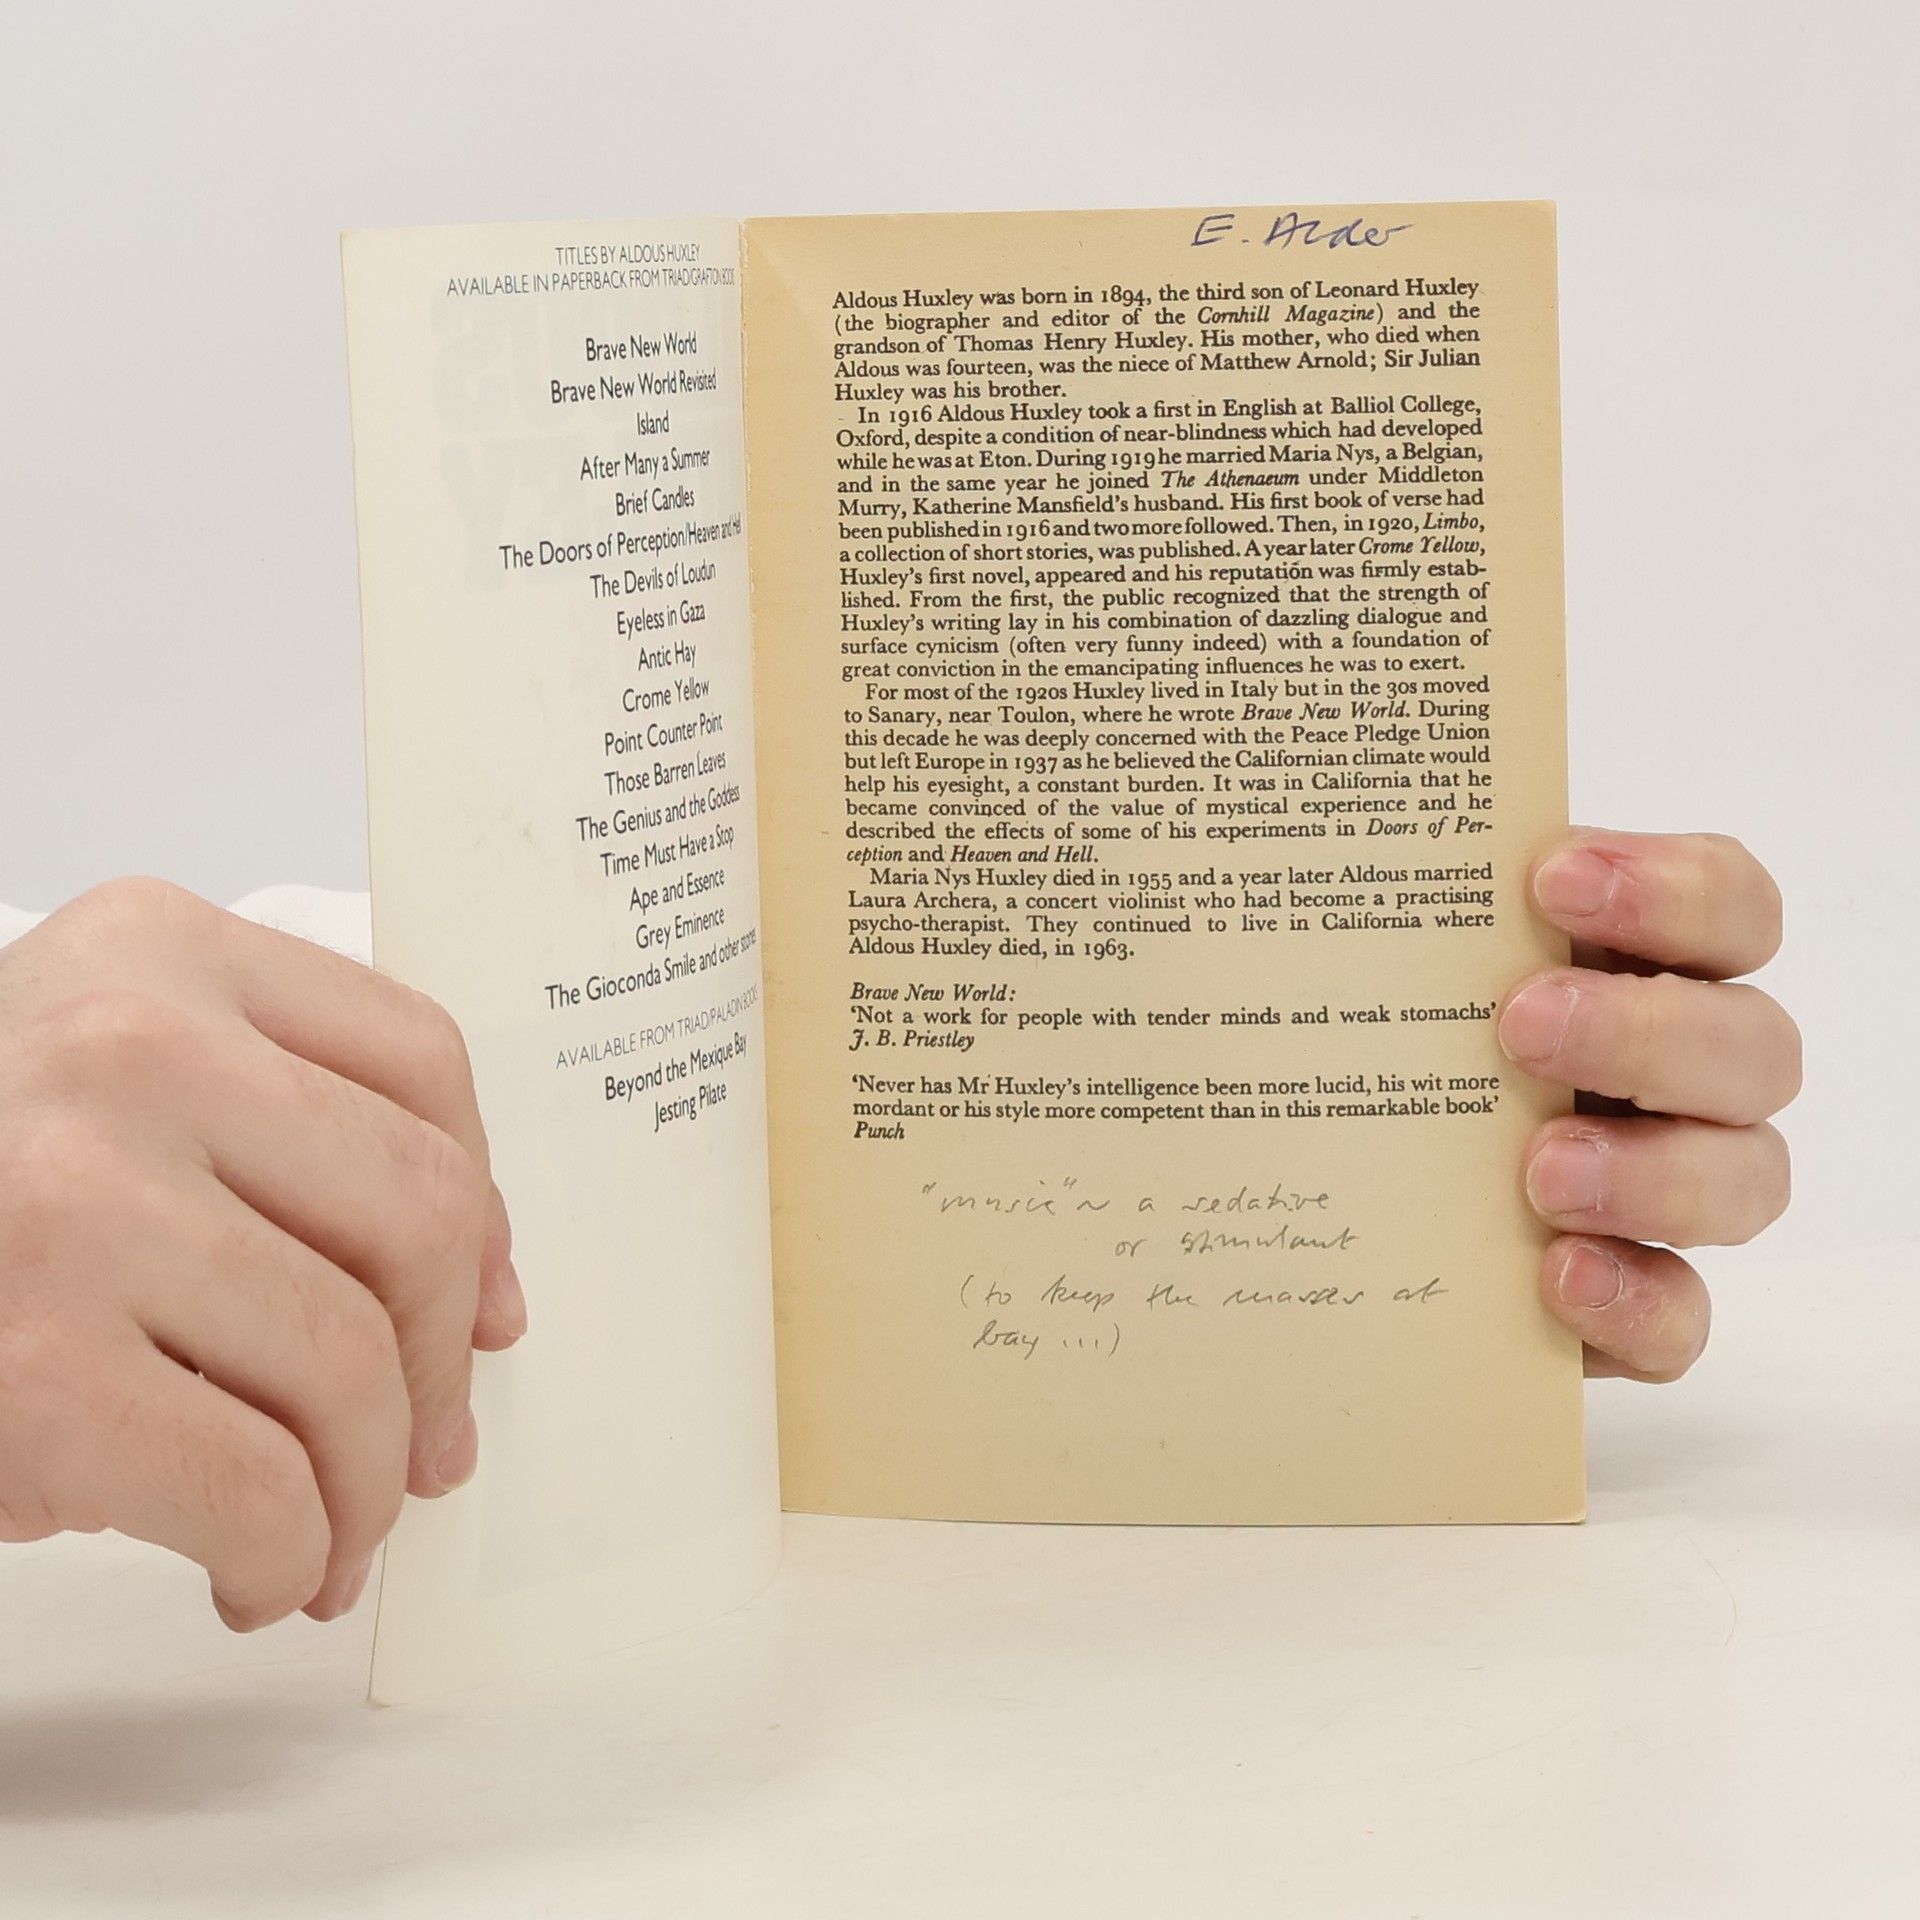 TITLES BY ALDOUS HUXLEY
AVAILABLE IN PAPERBACK FROM TRIAD/GRAFTON BOOKS
Brave New World
Brave New World Revisited
Island
After Many a Summer
Brief Candles
The Doors of Perception/Heaven and Hell
The Devils of Loudun
Eyeless in Gaza
Antic Hay
Crome Yellow
Point Counter Point
Those Barren Leaves
The Genius and the Goddess
Time Must Have a Stop
Ape and Essence
Grey Eminence
The Gioconda Smile and other stories
AVAILABLE FROM TRIAD/PALADIN BOOKS
Beyond the Mexique Bay
Jesting Pilate
E. Alder
Aldous Huxley was born in 1894, the third son of Leonard Huxley
(the biographer and editor of the Cornhill Magazine) and the
grandson of Thomas Henry Huxley. His mother, who died when
Aldous was fourteen, was the niece of Matthew Arnold; Sir Julian
Huxley was his brother.
In 1916 Aldous Huxley took a first in English at Balliol College,
Oxford, despite a condition of near-blindness which had developed
while he was at Eton. During 1919 he married Maria Nys, a Belgian,
and in the same year he joined The Athenaeum under Middleton
Murry, Katherine Mansfield's husband. His first book of verse had
been published in 1916 and two more followed. Then, in 1920, Limbo,
a collection of short stories, was published. A year later Crome Yellow,
Huxley's first novel, appeared and his reputation was firmly estab-
lished. From the first, the public recognized that the strength of
Huxley's writing lay in his combination of dazzling dialogue and
surface cynicism (often very funny indeed) with a foundation of
great conviction in the emancipating influences he was to exert.
For most of the 1920s Huxley lived in Italy but in the 30s moved
to Sanary, near Toulon, where he wrote Brave New World. During
this decade he was deeply concerned with the Peace Pledge Union
but left Europe in 1937 as he believed the Californian climate would
help his eyesight, a constant burden. It was in California that he
became convinced of the value of mystical experience and he
described the effects of some of his experiments in Doors of Per-
ception and Heaven and Hell.
Maria Nys Huxley died in 1955 and a year later Aldous married
Laura Archera, a concert violinist who had become a practising
psycho-therapist. They continued to live in California where
Aldous Huxley died, in 1963.
Brave New World:
'Not a work for people with tender minds and weak stomachs'
J. B. Priestley
'Never has Mr Huxley's intelligence been more lucid, his wit more
mordant or his style more competent than in this remarkable book'
Punch
"music" ~ a sedative
or stimulant
(to keep the masses at
bay ...)